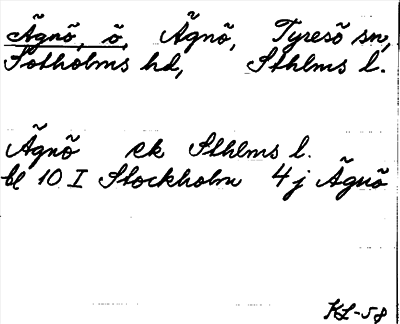 Ägnö, ö, Ägnö, Tyresö sn,
Sotholms hd, Sthlms l.
Ägnö ek Sthlms l.
bl 10 I Stockholm 4 j Ägnö
KL-58